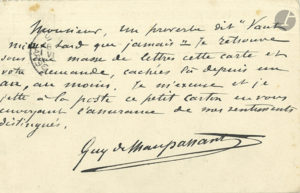 Monsieur, un proverbe dit "Vaut
mieux tard que jamais". Je retrouve
sous une masse de lettres cette carte et
votre demande, cachées là depuis un
an, au moins. Je m'excuse et je
jette à la poste ce petit carton en vous
envoyant l'assurance de mes sentiments
distingués.
Guy de Maupassant